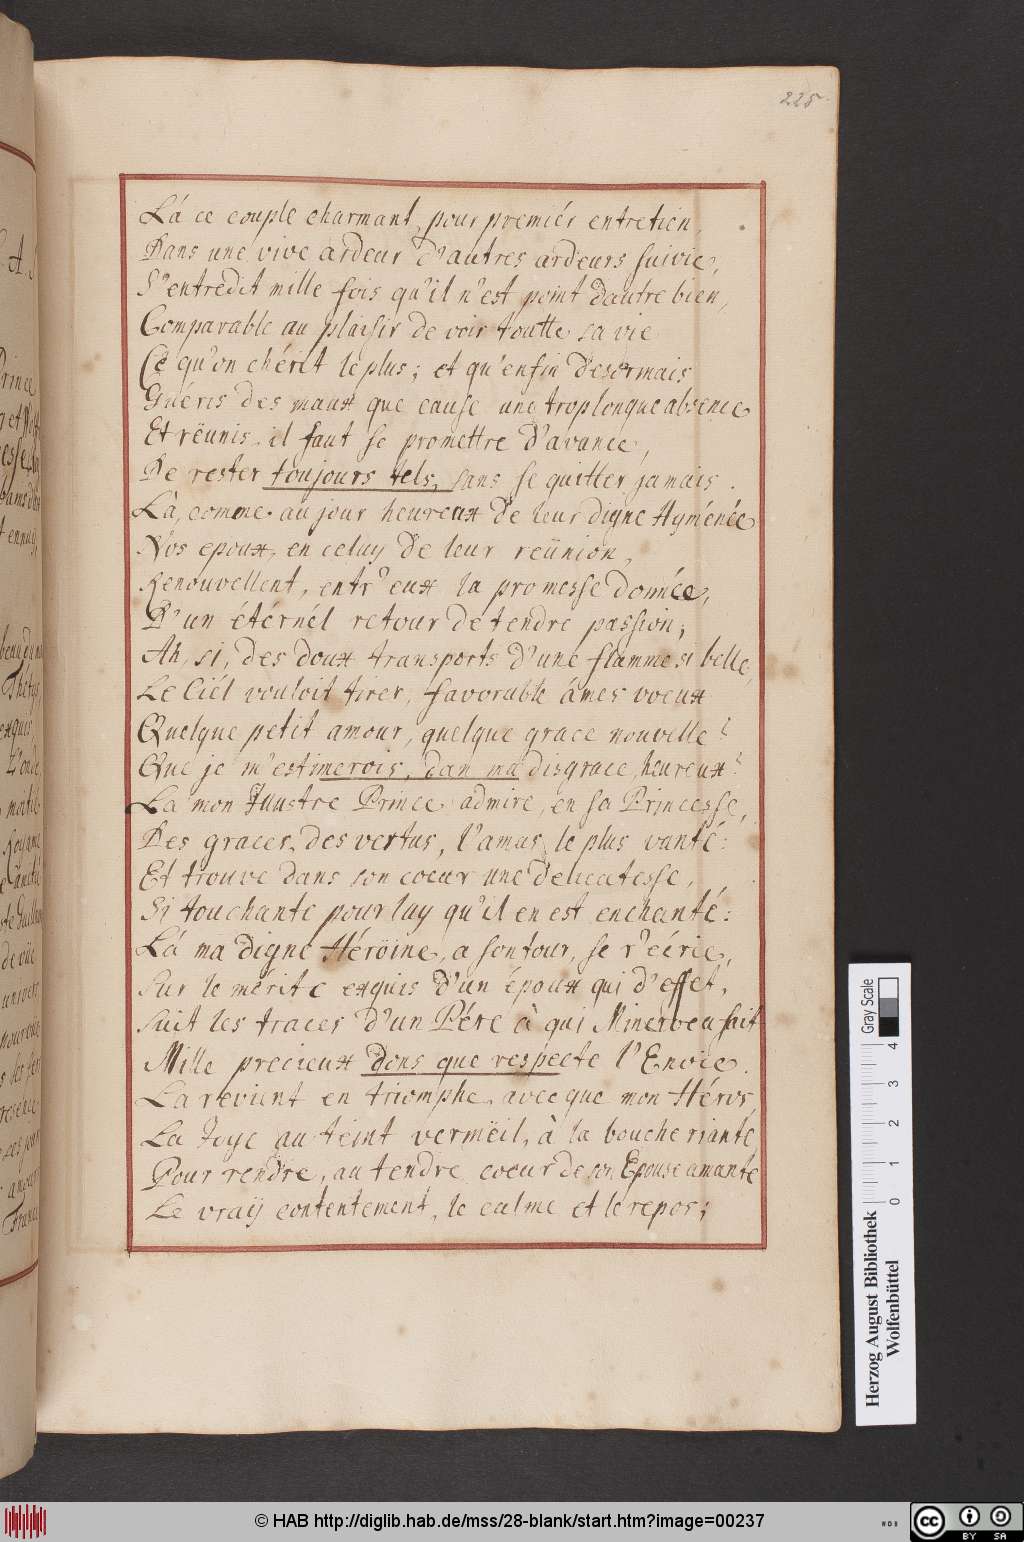 225.
Lá ce couple charmant, pour premiér entretien,
Dans une vive ardeur d'autres ardeurs suivie,
S'entredit mille fois qu'il n'est point dautre bien,
Comparable au plaisir de voir toutte sa vie
Ce qu'on chérit le plus; et qu'enfin desormais
Guéris des maux que cause une trop longue absence
Et rëunis, il faut se promettre d'avance,
De rester toujours tels, sans se quitter jamais.
Là, comme au jour heureux de leur digne Hyménée
Nos epoux, en celuy de leur reünion,
Renouvellent, entr'eux la promesse donnée,
D'un étérnél retour de tendre passion;
Ah, si, des doux transports d'une flamme si belle,
Le Ciél vouloit tirer, favorable ámes voeux
Quelque petit amour, quelque grace nouvelle?
Que je m'estimerois, dan ma disgrace, heureux?
La mon Illustre Prince admire, en sa Princesse,
Des graces, des vertus, l'amas le plus vanté:
Et trouve dans son coeur une delicatesse,
Si touchante pour luy qu'il en est enchanté:
Lá ma digne Héröine, a son tour, se r'écrie,
Sur le mérite exquis d'un époux qui d'effet,
Suit les traces d'un Pére à qui Minerve a fait
Mille precieux dons que respecte l'Envie.
La revient en triomphe, avecque mon Héros,
La Joye au teint vermëil, à la bouche riante
Pour rendre, au tendre coeur de son Epouse amante
Le vraÿ contentement, le calme et le repos;
Herzog August Bibliothek
Wolfenbüttel
0 1 2 3 4
Gray Scale
© HAB http://diglib.hab.de/mss/28-blank/start.htm?image=00237
WDB
cc BY SA